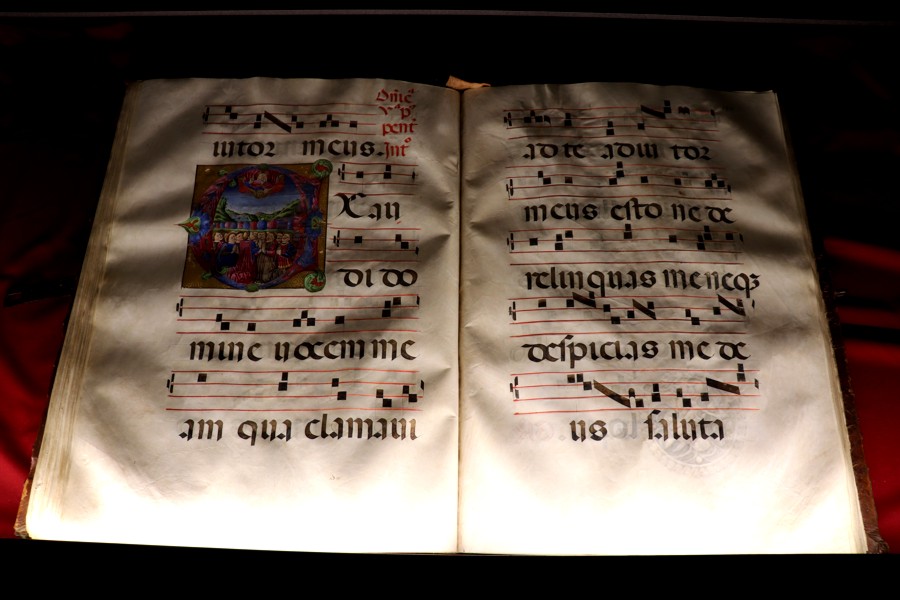 iutor meus.
Int°
Xau
di do
mine uocem me
am qua clamaui
ad te adiu tor
meus esto ne de
relinquas me neqꝫ
despicias me de
us saluta